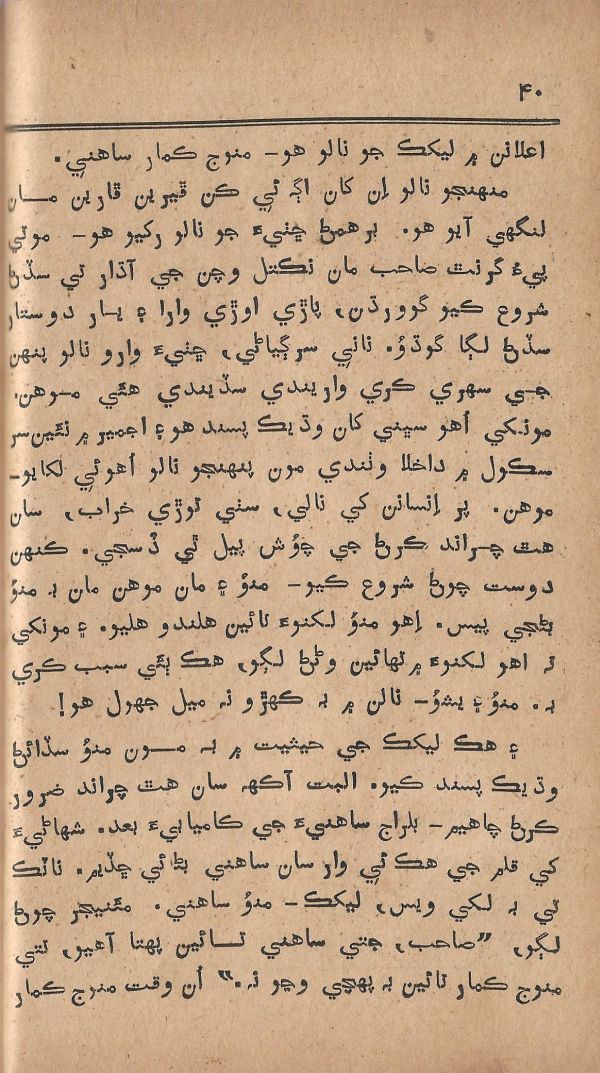 ۴۰
اعلانن ۾ ليکڪ جو نالو هو- منوج ڪمار ساهني.
منهنجو نالو اِن کان اڳ ئي ڪن ڦيرين ڦارين مان
لنگهي آيو هو. برهمڻ ڇٺيءَ جو نالو رکيو هو- موٽي
پيءُ گرنٿ صاحب مان نڪتل وچن جي آڌار تي سڏڻ
شروع ڪيو گوورڌن، پاڙي اوڙي وارا ۽ يار دوستار
سڏڻ لڳا گوڌوُ. ناني سرڳياڻي، ڇٺيءَ وارو نالو پنهن
جي سهري ڪري واريندي سڏيندي هئي موهن.
مونکي اُهو سڀني کان وڌيڪ پسند هو ۽ اجمير ۾ نئين سر
سڪول ۾ داخلا وٺندي مون پنهنجو نالو اُهوئي لکايو-
موهن. پر اِنسانن کي نالي، سٺي توڙي خراب، سان
هٿ چراند ڪرڻ جي چوُش پيل ئي ڏسجي. ڪنهن
دوست چوڻ شروع ڪيو- منوُ ۽ مان موهن مان بہ منوُ
بڻجي پيس. اِهو منوُ لکنوءَ تائين هلندو هليو. ۽ مونکي
تہ اهو لکنوءَ ۾ تهائين وڻڻ لڳو، هڪ ٻئي سبب ڪري
بہ. منوُ ۽ يشوُ- نالن ۾ بہ ڪهڙو نہ ميل جهول هو!
۽ هڪ ليکڪ جي حيثيت ۾ بہ مون منوُ سڏائڻ
وڌيڪ پسند ڪيو. البت آکهہ سان هٿ چراند ضرور
ڪرڻ چاهيم- بلراج ساهنيءَ جي ڪاميابيءَ بعد. شهاڻيءَ
کي قلم جي هڪ ئي وار سان ساهني بڻائي ڇڏيم. ناٽڪ
تي بہ لکي ويس، ليکڪ- منوُ ساهني. مئنيجر چوڻ
لڳو، ”صاحب، جتي ساهني تائين پهتا آهيو، تتي
منوج ڪمار تائين بہ پهچي وڃو نہ.“ اُن وقت منوج ڪمار